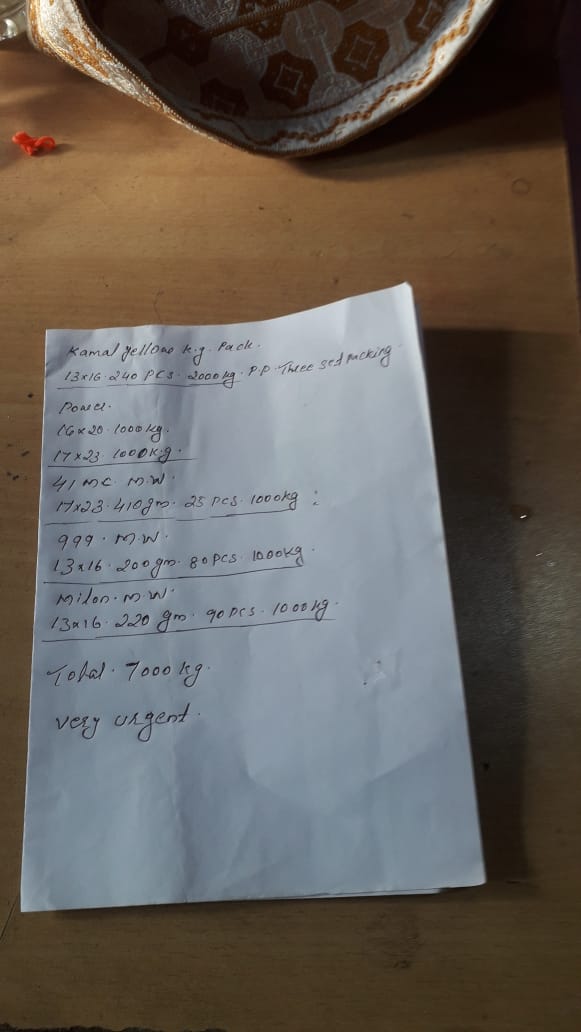 Kamal yellow k.g. Pack.
13x16. 240 PCS. 2000kg. P.P. Three sed packing.
Power.
16x20. 1000kg.
17x23. 1000kg.
41 MC. M.W.
17x23. 410gm. 25 PCS. 1000kg
999. M.W.
13x16. 200gm. 80 PCS. 1000kg.
Milon. M.W.
13x16. 220 gm. 90 PCS. 1000kg.
Total. 7000 kg.
very urgent.